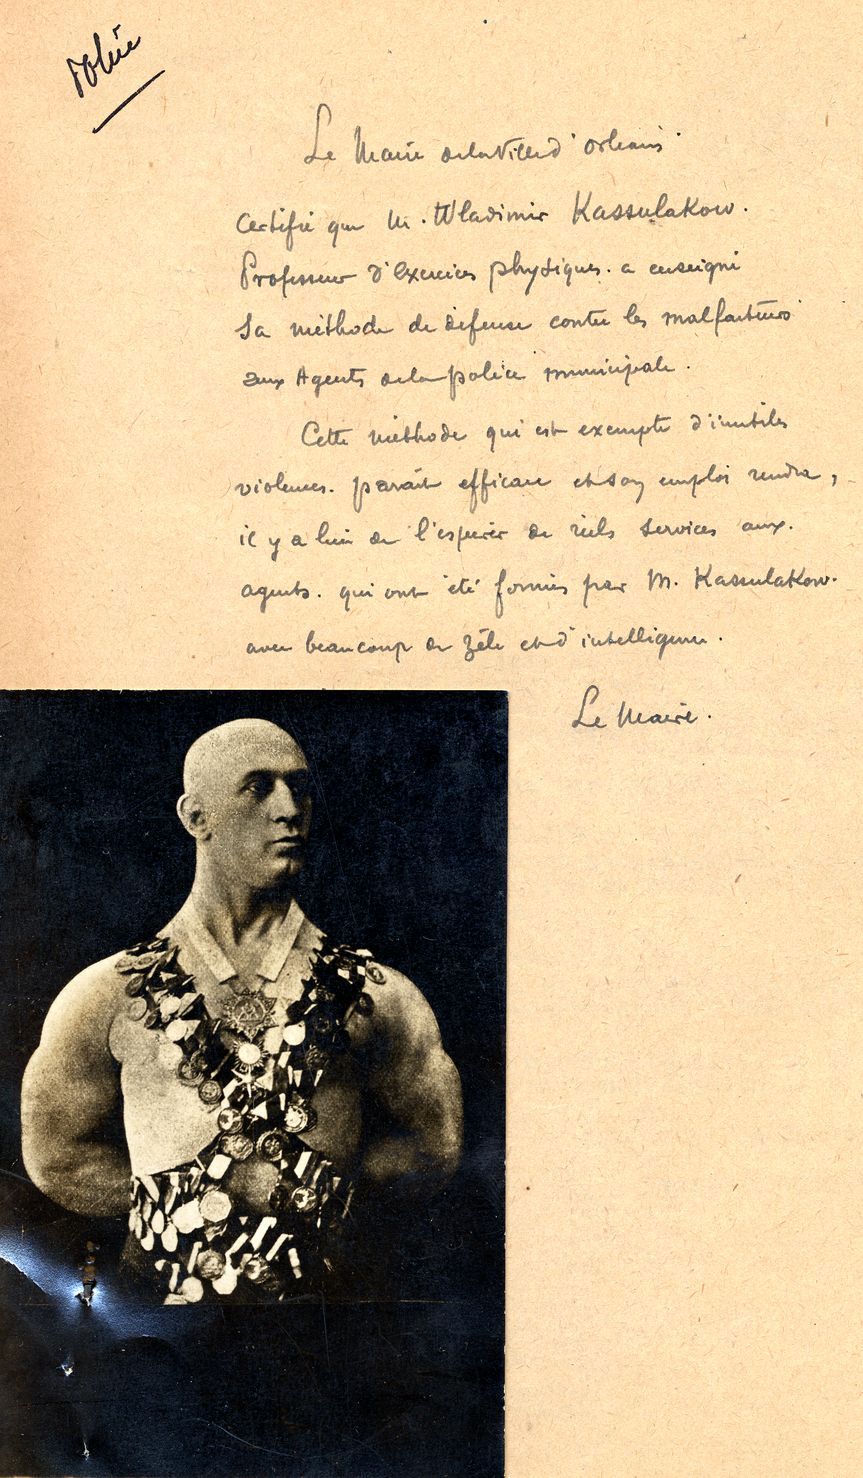 Le Maire de la Ville d'Orléans
Certifie que M. Wladimir Kassulakow.
Professeur d'Exercices physiques. a enseigné
sa méthode de défense contre les malfaiteurs
aux Agents de la police municipale.
Cette méthode qui est exempte d'inutiles
violences. paraît efficace et son emploi rendra,
il y a lieu de l'espérer de réels services aux.
agents. qui ont été formés par M. Kassulakow.
avec beaucoup de zèle et d'intelligence.
Le Maire.